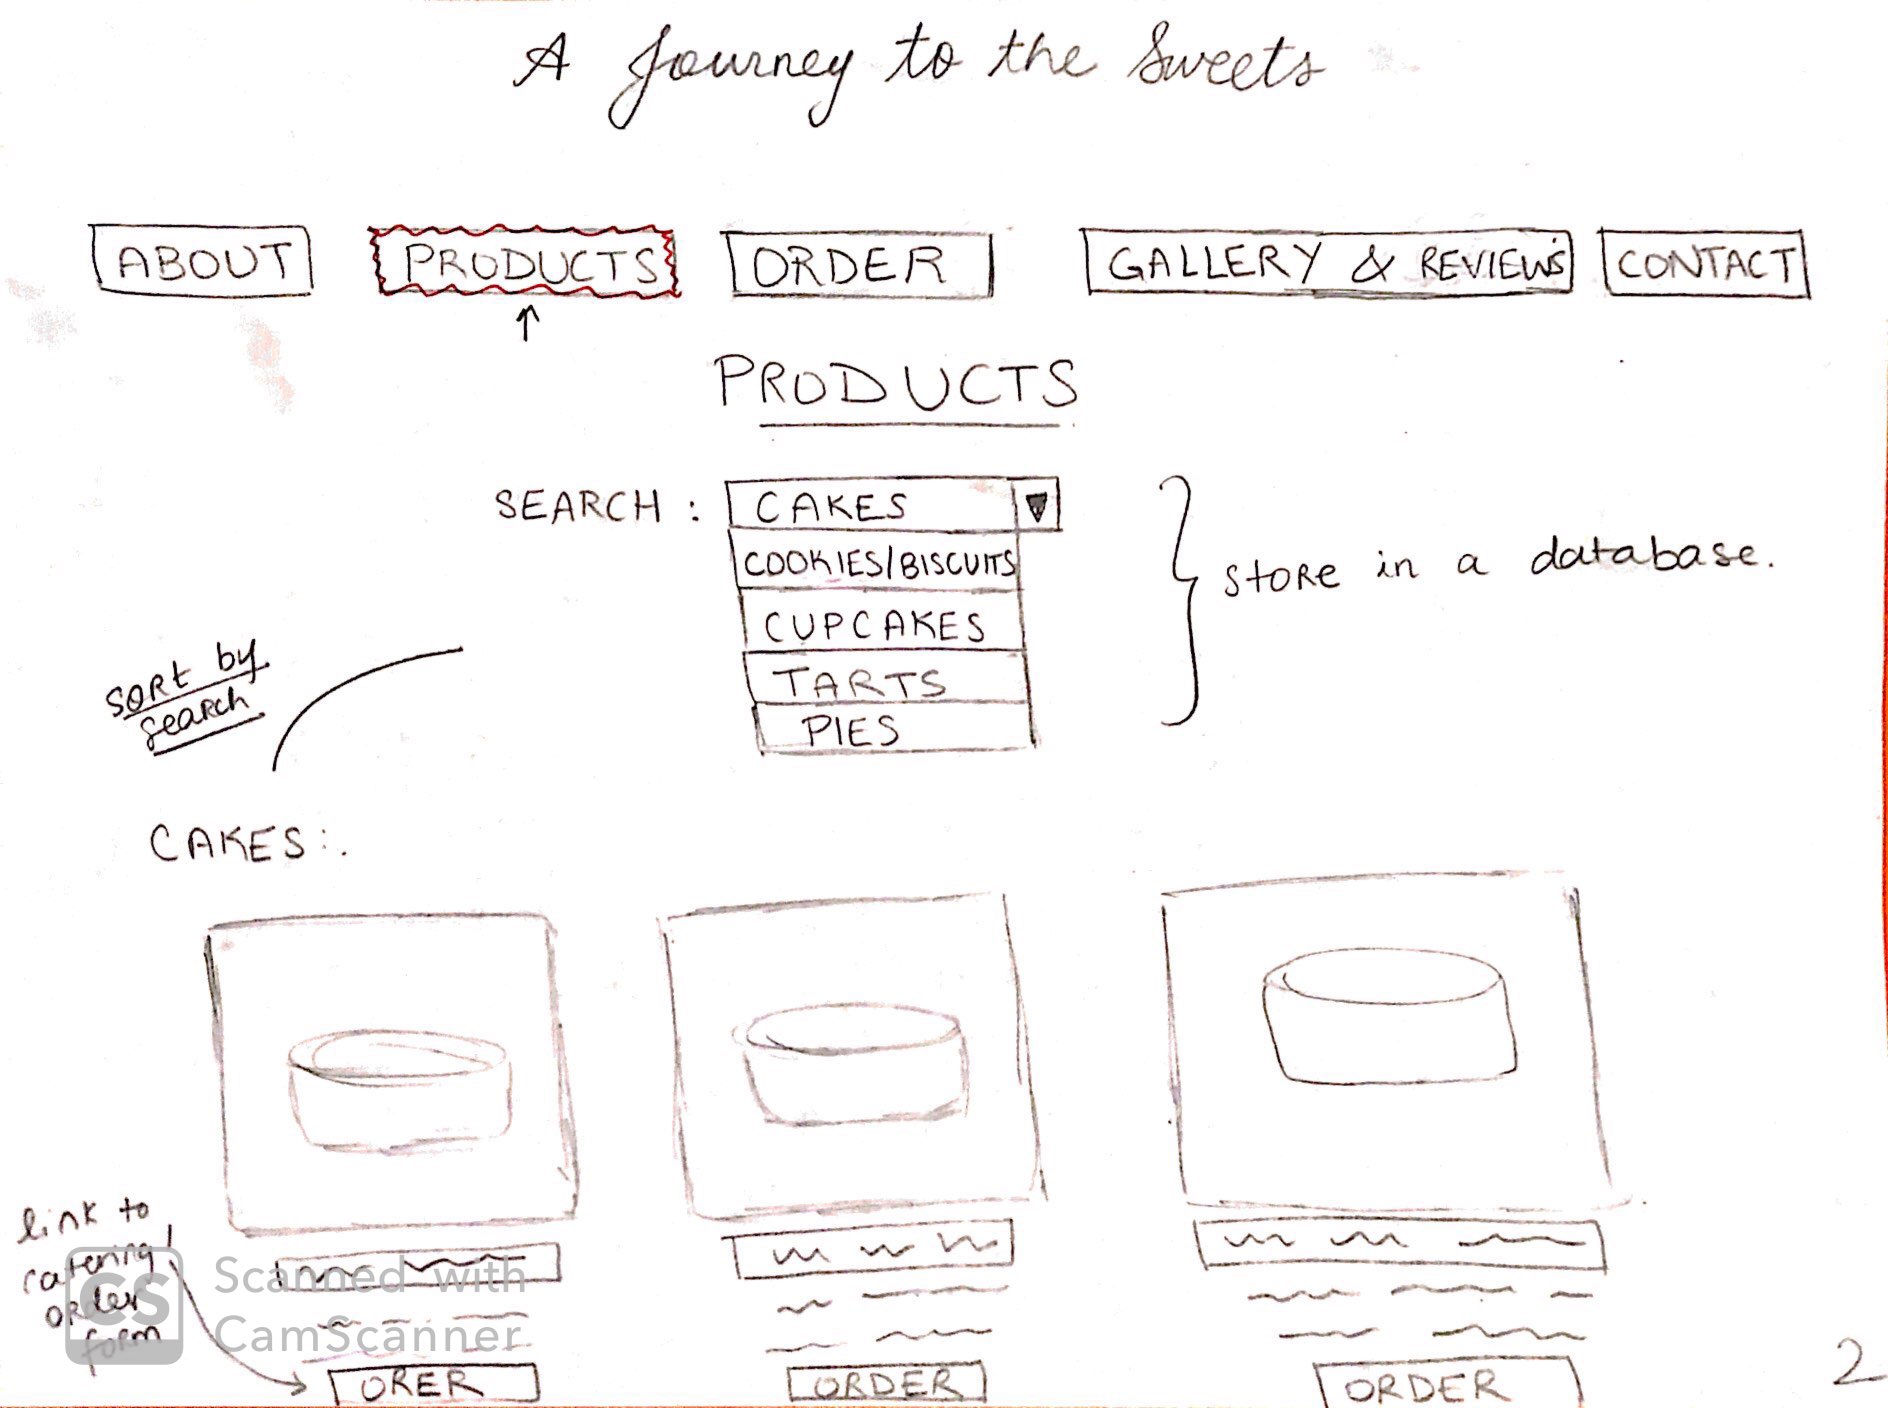 A Journey to the Sweets
ABOUT PRODUCTS ORDER GALLERY & REVIEWS CONTACT
PRODUCTS
SEARCH : CAKES
COOKIES/BISCUITS
CUPCAKES
TARTS
PIES
store in a database.
SORt by
search
CAKES:.
link to
catering/
order
form
Scanned with
CamScanner
CS
ORER ORDER ORDER
2